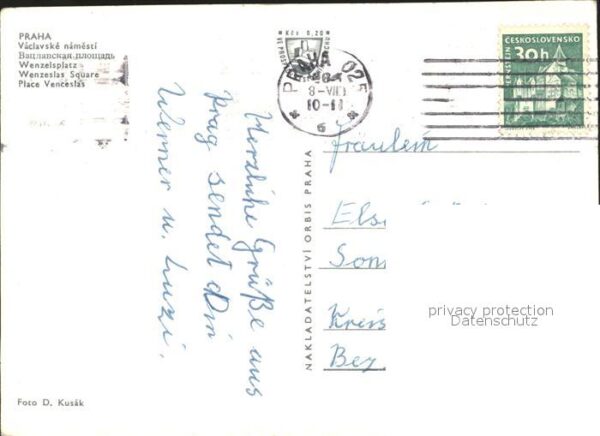 PRAHA
Václavské náměstí
Вацлавская площадь
Wenzelsplatz
Wenzeslas Square
Place Venceslas
Kčs 0,20
PRAHA 025
8-VIII
10-11
6
ČESKOSLOVENSKO
30h
Herzliche Grüße aus
Prag sendet Dir
Werner u. Luzi.
NAKLADATELSTVÍ ORBIS PRAHA
Fräulein
Els
Son
Kreis
Bez
privacy protection
Datenschutz
Foto D. Kusák